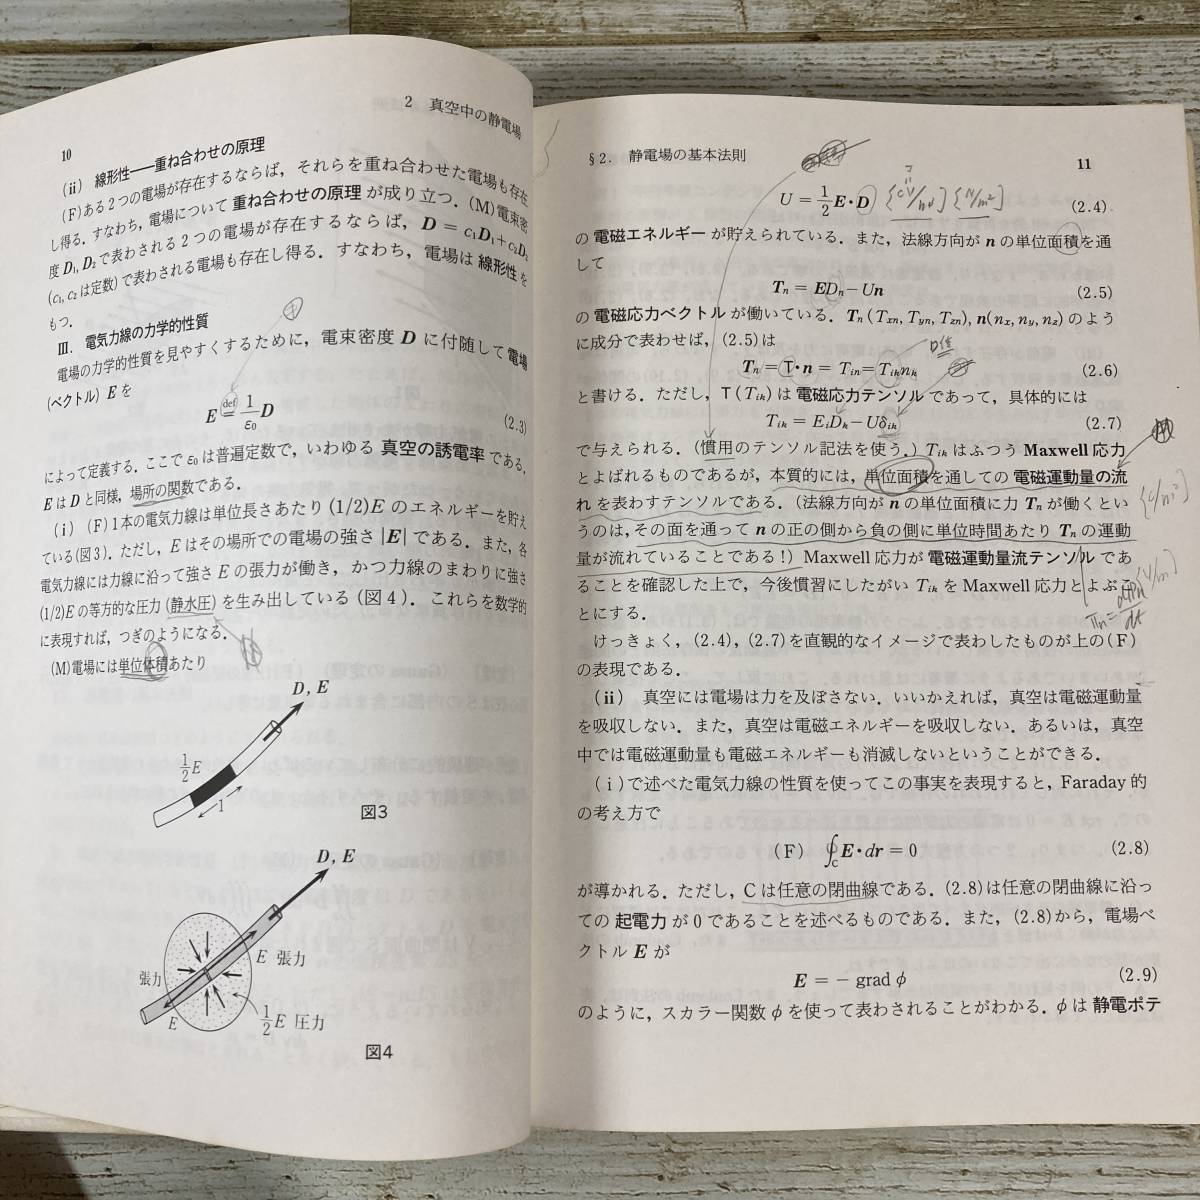 2 真空中の静電場
10
(ii) 線形性——重ね合わせの原理
(F)ある2つの電場が存在するならば，それらを重ね合わせた電場も存在
し得る．すなわち，電場について重ね合わせの原理が成り立つ．(M)電束密
度D₁, D₂で表わされる2つの電場が存在するならば，D = c₁D₁+c₂D₂
(c₁, c₂は定数)で表わされる電場も存在し得る．すなわち，電場は線形性を
もつ．
III. 電気力線の力学的性質
電場の力学的性質を見やすくするために，電束密度Dに付随して電場
(ベクトル)Eを
E = 1/ε₀ D (2.3)
def
によって定義する．ここでε₀は普遍定数で，いわゆる真空の誘電率である．
EはDと同様，場所の関数である．
(i) (F)1本の電気力線は単位長さあたり(1/2)Eのエネルギーを貯え
ている(図3)．ただし，Eはその場所での電場の強さ|E|である．また，各
電気力線には力線に沿って強さEの張力が働き，かつ力線のまわりに強さ
(1/2)Eの等方的な圧力(静水圧)を生み出している(図4)．これらを数学的
に表現すれば，つぎのようになる．
(M)電場には単位体積あたり
D, E
1/2 E
1
図3
D, E
E 張力
張力
E
1/2 E 圧力
図4
§2. 静電場の基本法則
11
U = 1/2 E·D (2.4)
の電磁エネルギーが貯えられている．また，法線方向がnの単位面積を通
して
Tₙ = EDₙ−Un (2.5)
の電磁応力ベクトルが働いている．Tₙ(Tₓₙ, Tyn, Tzn), n(nₓ, ny, nz)のよう
に成分で表わせば，(2.5)は
Tₙ = T·n = Tin = Tiknk (2.6)
と書ける．ただし，T(Tik)は電磁応力テンソルであって，具体的には
Tik = EiDk−Uδik (2.7)
で与えられる．(慣用のテンソル記法を使う．)Tikはふつう Maxwell 応力
とよばれるものであるが，本質的には，単位面積を通しての電磁運動量の流
れを表わすテンソルである．(法線方向がnの単位面積に力Tₙが働くとい
うのは，その面を通ってnの正の側から負の側に単位時間あたりTₙの運動
量が流れていることである！) Maxwell 応力が電磁運動量流テンソルであ
ることを確認した上で，今後慣習にしたがいTikを Maxwell 応力とよぶこ
とにする．
けっきょく，(2.4), (2.7)を直観的なイメージで表わしたものが上の(F)
の表現である．
(ii) 真空には電場は力を及ぼさない．いいかえれば，真空は電磁運動量
を吸収しない．また，真空は電磁エネルギーを吸収しない．あるいは，真空
中では電磁運動量も電磁エネルギーも消滅しないということができる．
(i)で述べた電気力線の性質を使ってこの事実を表現すると，Faraday的
の考え方で
(F) ∮C E·dr = 0 (2.8)
が導かれる．ただし，Cは任意の閉曲線である．(2.8)は任意の閉曲線に沿っ
ての起電力が0であることを述べるものである．また，(2.8)から，電場ベ
クトルEが
E = − grad φ (2.9)
のように，スカラー関数φを使って表わされることがわかる．φは静電ポテ
{N/m²}
{C/m²}
{V/m}